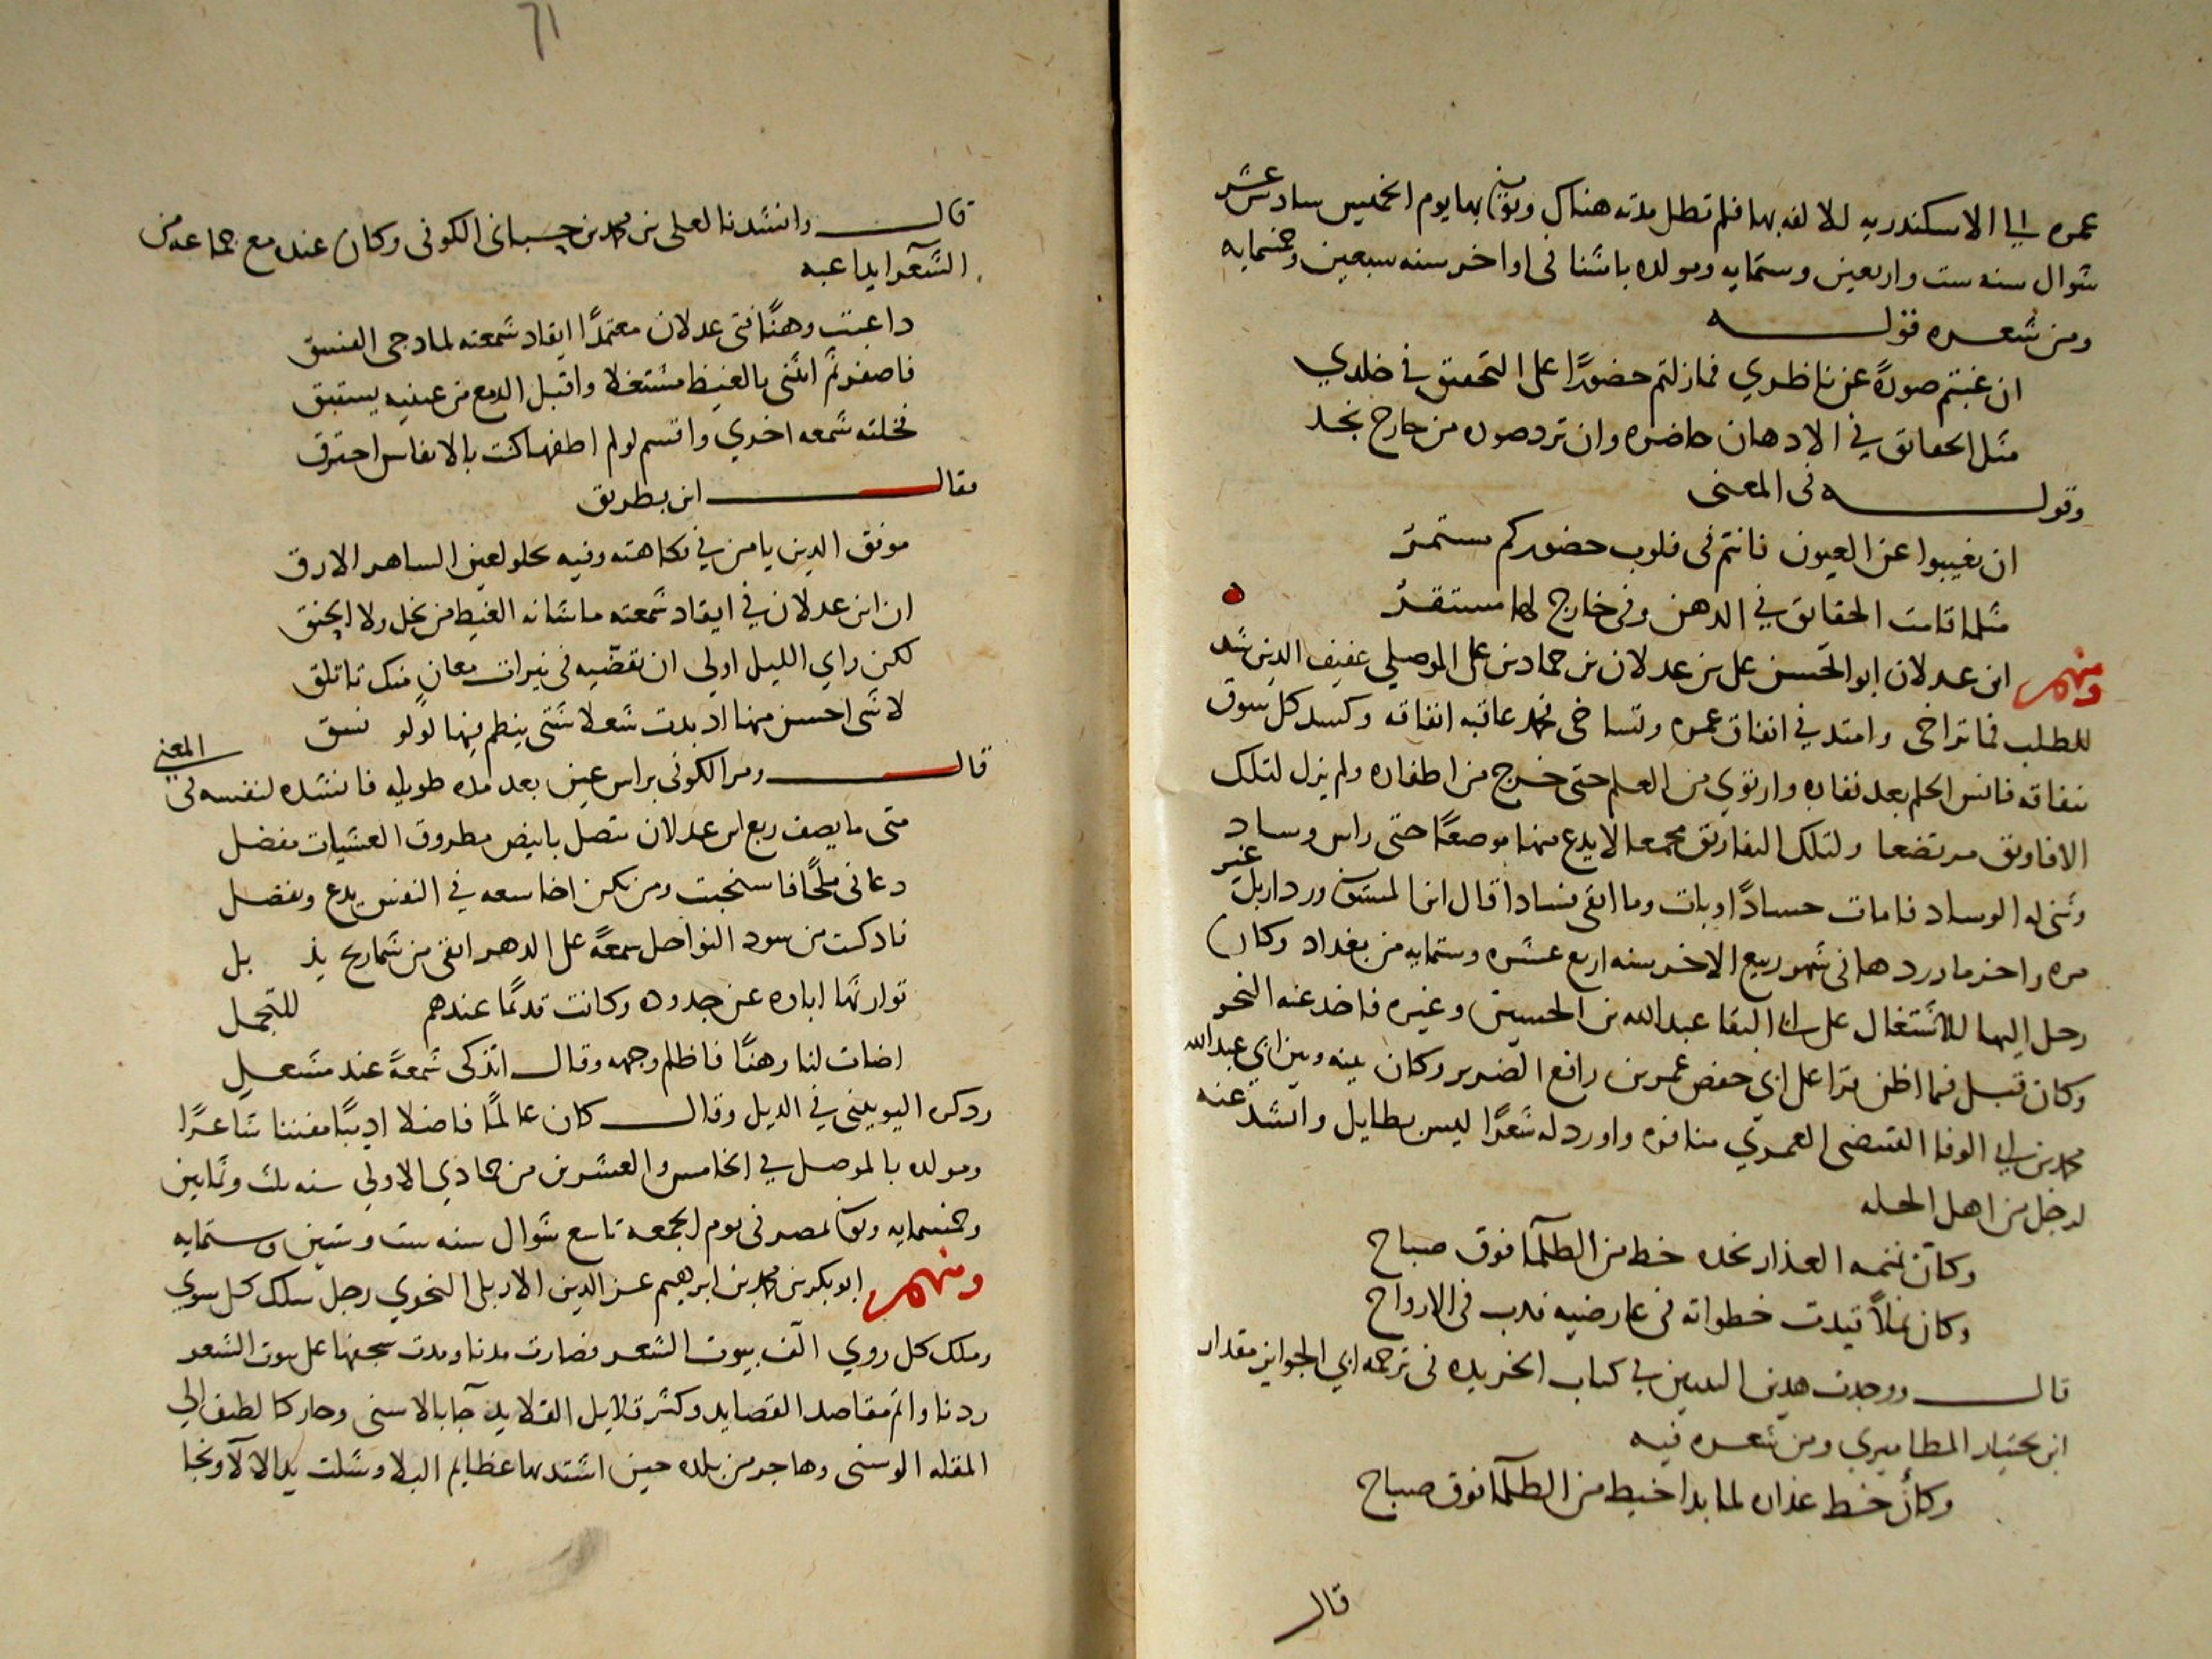 عمره الى الاسكندريه للالفه بها فلم تطل مدته هناك وتوفى بها يوم الخميس سادس عشر
شوال سنه ست واربعين وستمايه ومولده باشنا فى اواخر سنه سبعين وخمسمايه
ومن شعره قوله
ان غبتم صورةً عن ناظري فما زلتم حضورًا على التحقيق في خلدي
مثل الحقائق في الاذهان حاضره وان ترد صوره من خارج تجد
وقوله فى المعنى
ان تغيبوا عن العيون فانتم فى قلوب حضوركم مستمرّ
مثلما قامت الحقايق في الدهن وفى خارج لها مستقرّ
ومنهم ابن عدلان ابو الحسن على بن عدلان بن حماد بن على الموصلي عفيف الدين شد
للطلب فما تراخى وامتد في انفاق عمره وتساخى فحمد عاقبه انفاقه وكسد كل سوق
بنفاقه فانس الحلم بعد نفاره وارتوي من العلم حتى خرج من اظفاره ولم يزل لتلك
الافاويق مرتضعا ولتلك التفاريق مجمعا لا يدع منها موضعًا حتى راس وساد
وثنى له الوساد فامات حسادًا وبات وما ابقى فسادا قال ابن المستوفى ورد اربل غير
مره واخر ما وردها فى شهر ربيع الاخر سنه اربع عشره وستمايه من بغداد وكان
رحل اليها للاشتغال على ابى البقا عبد الله بن الحسين وغيره فاخذ عنه النحو
وكان قبل فما اظن قرا على ابى حفص عمر بن رافع الضرير وكان بينه وبين ابي عبد الله
محمد بن ابى الوفا القبيضى العمري منافره واورد له شعرًا ليس بطايل وانشد عنه
لرجل من اهل الحله
وكانّ نمنمه العذار بخده خط من الظلمآ فوق صباح
وكان نملاً قيدت خطواته فى عارضيه فدب فى الارواح
قال ووجدت هدين البيتين في كتاب الخريده فى ترجمه ابي الجوايز مقدار
ابن بختيار المطاميري ومن شعره فيه
وكأنّ خط عذاره لما بدا خيط من الظلمآ فوق صباح
قال
71
قال وانشدنا لعلى بن محمد بن الكوفى وكان عنده مع جماعه من
الشعرآ يداعبه
داعبت وهنًا فتى عدلان معتمدًا ايقاد شمعته لما دجى الغسق
فاصفر ثم انثنى بالغيظ مشتغلا واقبل الدمع من عينيه يستبق
فخلته شمعه اخري واقسم لو لم اطفها كنت بالانفاس احترق
فقال ابن بطريق
موفق الدين يا من في فكاهته وفيه يحلو لعين الساهر الارق
ان ابن عدلان في ايقاد شمعته ما شانه الغيظ من بخل ولا الحنق
لكن راي الليل اولى ان تقضّيه فى نيرات معانٍ منك تاتلق
لا شى احسن منها اذ بدت شعلا شتى ينظم فيها لولو نسق
قال ومر الكوفى براس عين بعد مده طويله فانشده لنفسه فى المعنى
متى ما يصف ربع ابن عدلان يتصل بابيض مطروق العشيات مفضل
دعانى ملحًا فاستجبت ومن يكن اخا سعه في النفس يدع ويفضل
فادركت من سود النواحل شمعةً على الدهر ابقى من شماريخ يذبل
توارثها اباوه عن جدوده وكانت قدمًا عندهم للتجمل
اضات لنا وهنًا فاظلم وجهه وقال اتذكى شمعةً عند مشعل
وذكره اليونينى في الذيل وقال كان عالمًا فاضلا اديبًا مفننا شاعرًا
ومولده بالموصل في الخامس والعشرين من جمادي الاولي سنه ثلث وثمانين
وخمسمايه وتوفى بمصر فى يوم الجمعه تاسع شوال سنه ست وستين وستمايه
ومنهم ابو بكر بن محمد بن ابرهيم عز الدين الاربلى النحوي رجل سلك كل سوي
وملك كل روي الف بيوت الشعر فصارت مدنا ومدت سجفها على بيوت الشعر
ردنا واتم مقاصد القصايد وكثر قلايل القلايد جآ بالاسنى وحار كالطيف الي
المقله الوسنى وهاجر من بلده حين اشتد بها عظايم البلا وشلت يد الالآ ونجا